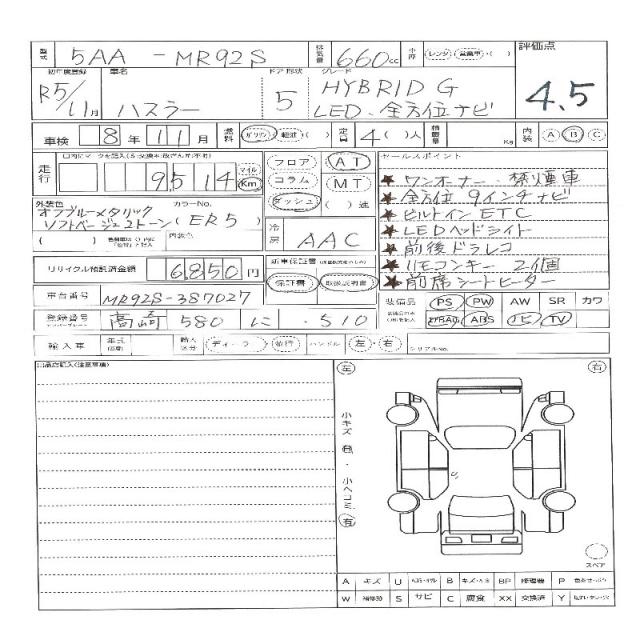 型式 5AA-MR92S 排気量 660cc 中車 (レンタ・営業車・( ) 評価点
初年度登録 車名 ドア形状 グレード
R5/11月 ハスラー 5 HYBRID G 4.5
LED・全方位ナビ
車検 8年11月 燃料 ガソリン・軽油・( ) 定員 4( )人 積載量 Kg 内装 A B C
走行 9514 マイル Km フロア AT セールスポイント
コラム MT ★ワンオーナー・禁煙車
ダッシュ ( )速 ★全方位9インチナビ
外装色 カラーNo. ★ビルトインETC
オフブルーメタリック
ソフトベージュ2トーン (ER5) 冷房 AAC ★LEDヘッドライト
( ) 内装色 ★前後ドラレコ
リサイクル預託済金額 6850円 新車保証書 ★リモコンキー 2個
保証書 取扱説明書 ★前席シートヒーター
車台番号 MR92S-387027 装備品 PS PW AW SR カワ
登録番号 高崎 580 に ・510 エアBAG ABS ナビ TV
輸入車 年式 輸入区分 ディーラー・並行 ハンドル 左・右 シリアルNo.
左 右
小キズ 有・小ヘコミ 有
スペア
A キズ U B キズ・ヘコ BP 修理機 P
W 補修跡 S サビ C 腐食 XX 交換済 Y